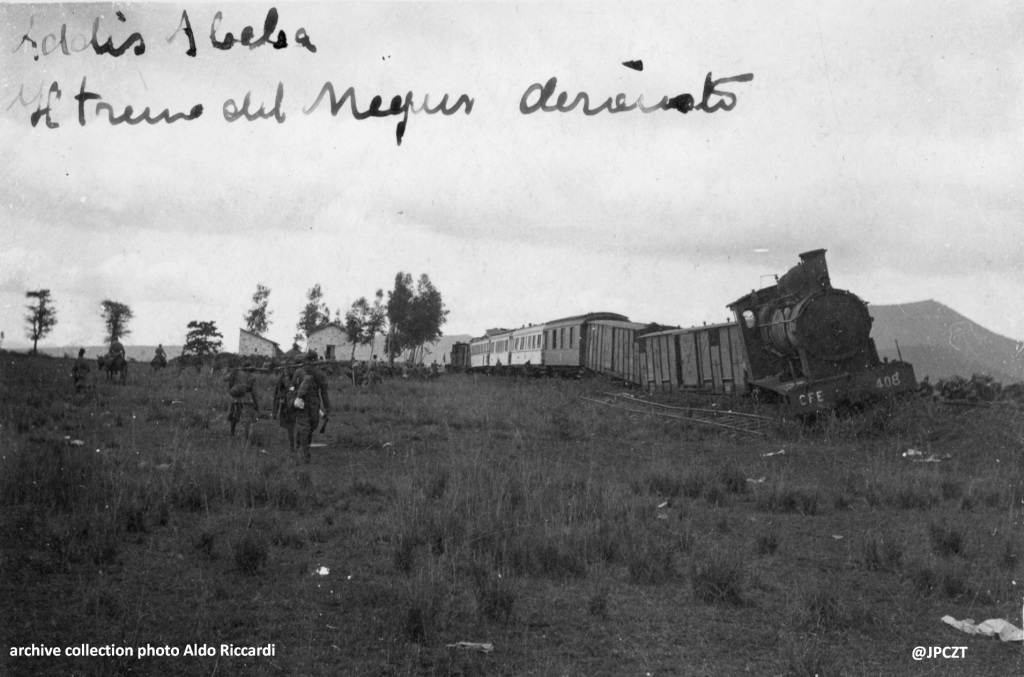 Addis Abeba
Il treno del Negus deragliato
CFE
408
archive collection photo Aldo Riccardi
@JPCZT